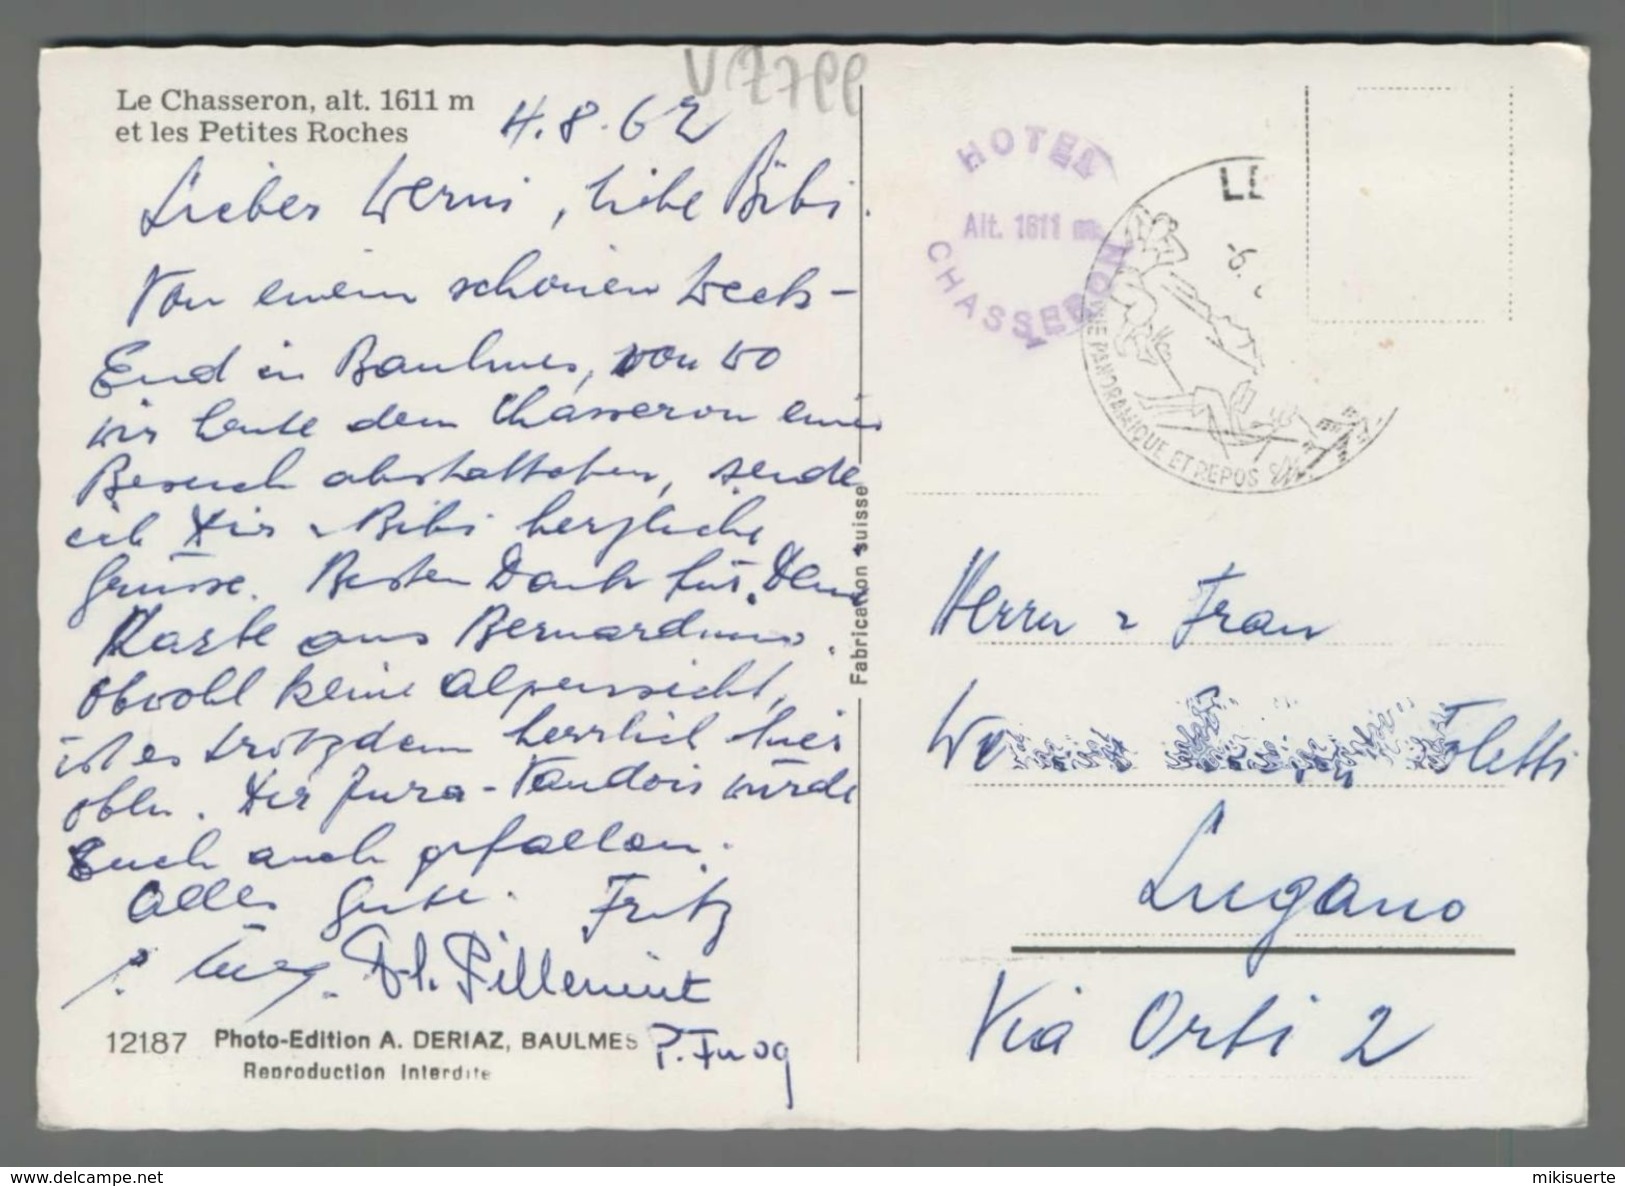 Le Chasseron, alt. 1611 m
et les Petites Roches
4.8.62
Lieber Werni, liebe Bibi.
Von einem schönen Week-
End in Baulmes, von wo
wir heute dem Chasseron einen
Besuch abstatteten, sende
ich Dir u Bibi herzliche
Grüsse. Besten Dank für Deine
Karte aus Bernardino.
Obwohl keine Alpensicht,
ist es trotzdem herrlich hier
oben. Der Jura-Vaudois würde
Euch auch gefallen.
Alles Gute. Fritz
Pillemint
P. Furog
12187 Photo-Edition A. DERIAZ, BAULMES
Reproduction interdite
Fabrication suisse
HOTEL
Alt. 1611 m
CHASSERON
PANORAMIQUE ET REPOS
Herrn u Frau
Foletti
Lugano
Via Orti 2
mikisuerte